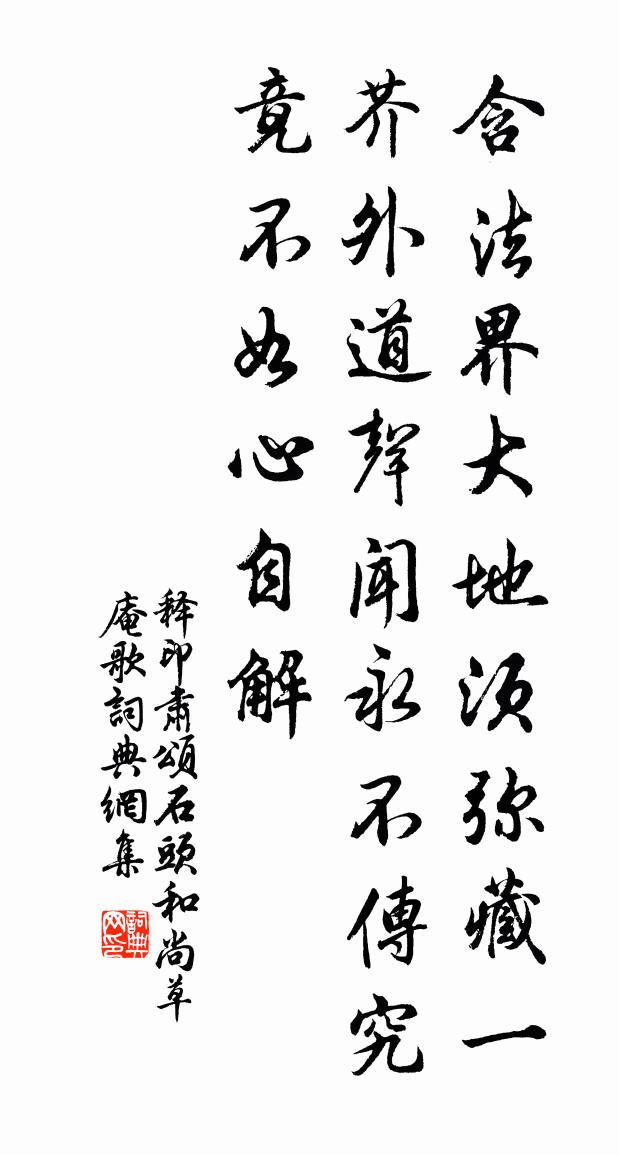 含法界大地须弥藏一
芥外道聲聞永不傳究
竟不如心自解
释印肃頌石頭和尚草
庵歌詞典網集
詞典网印